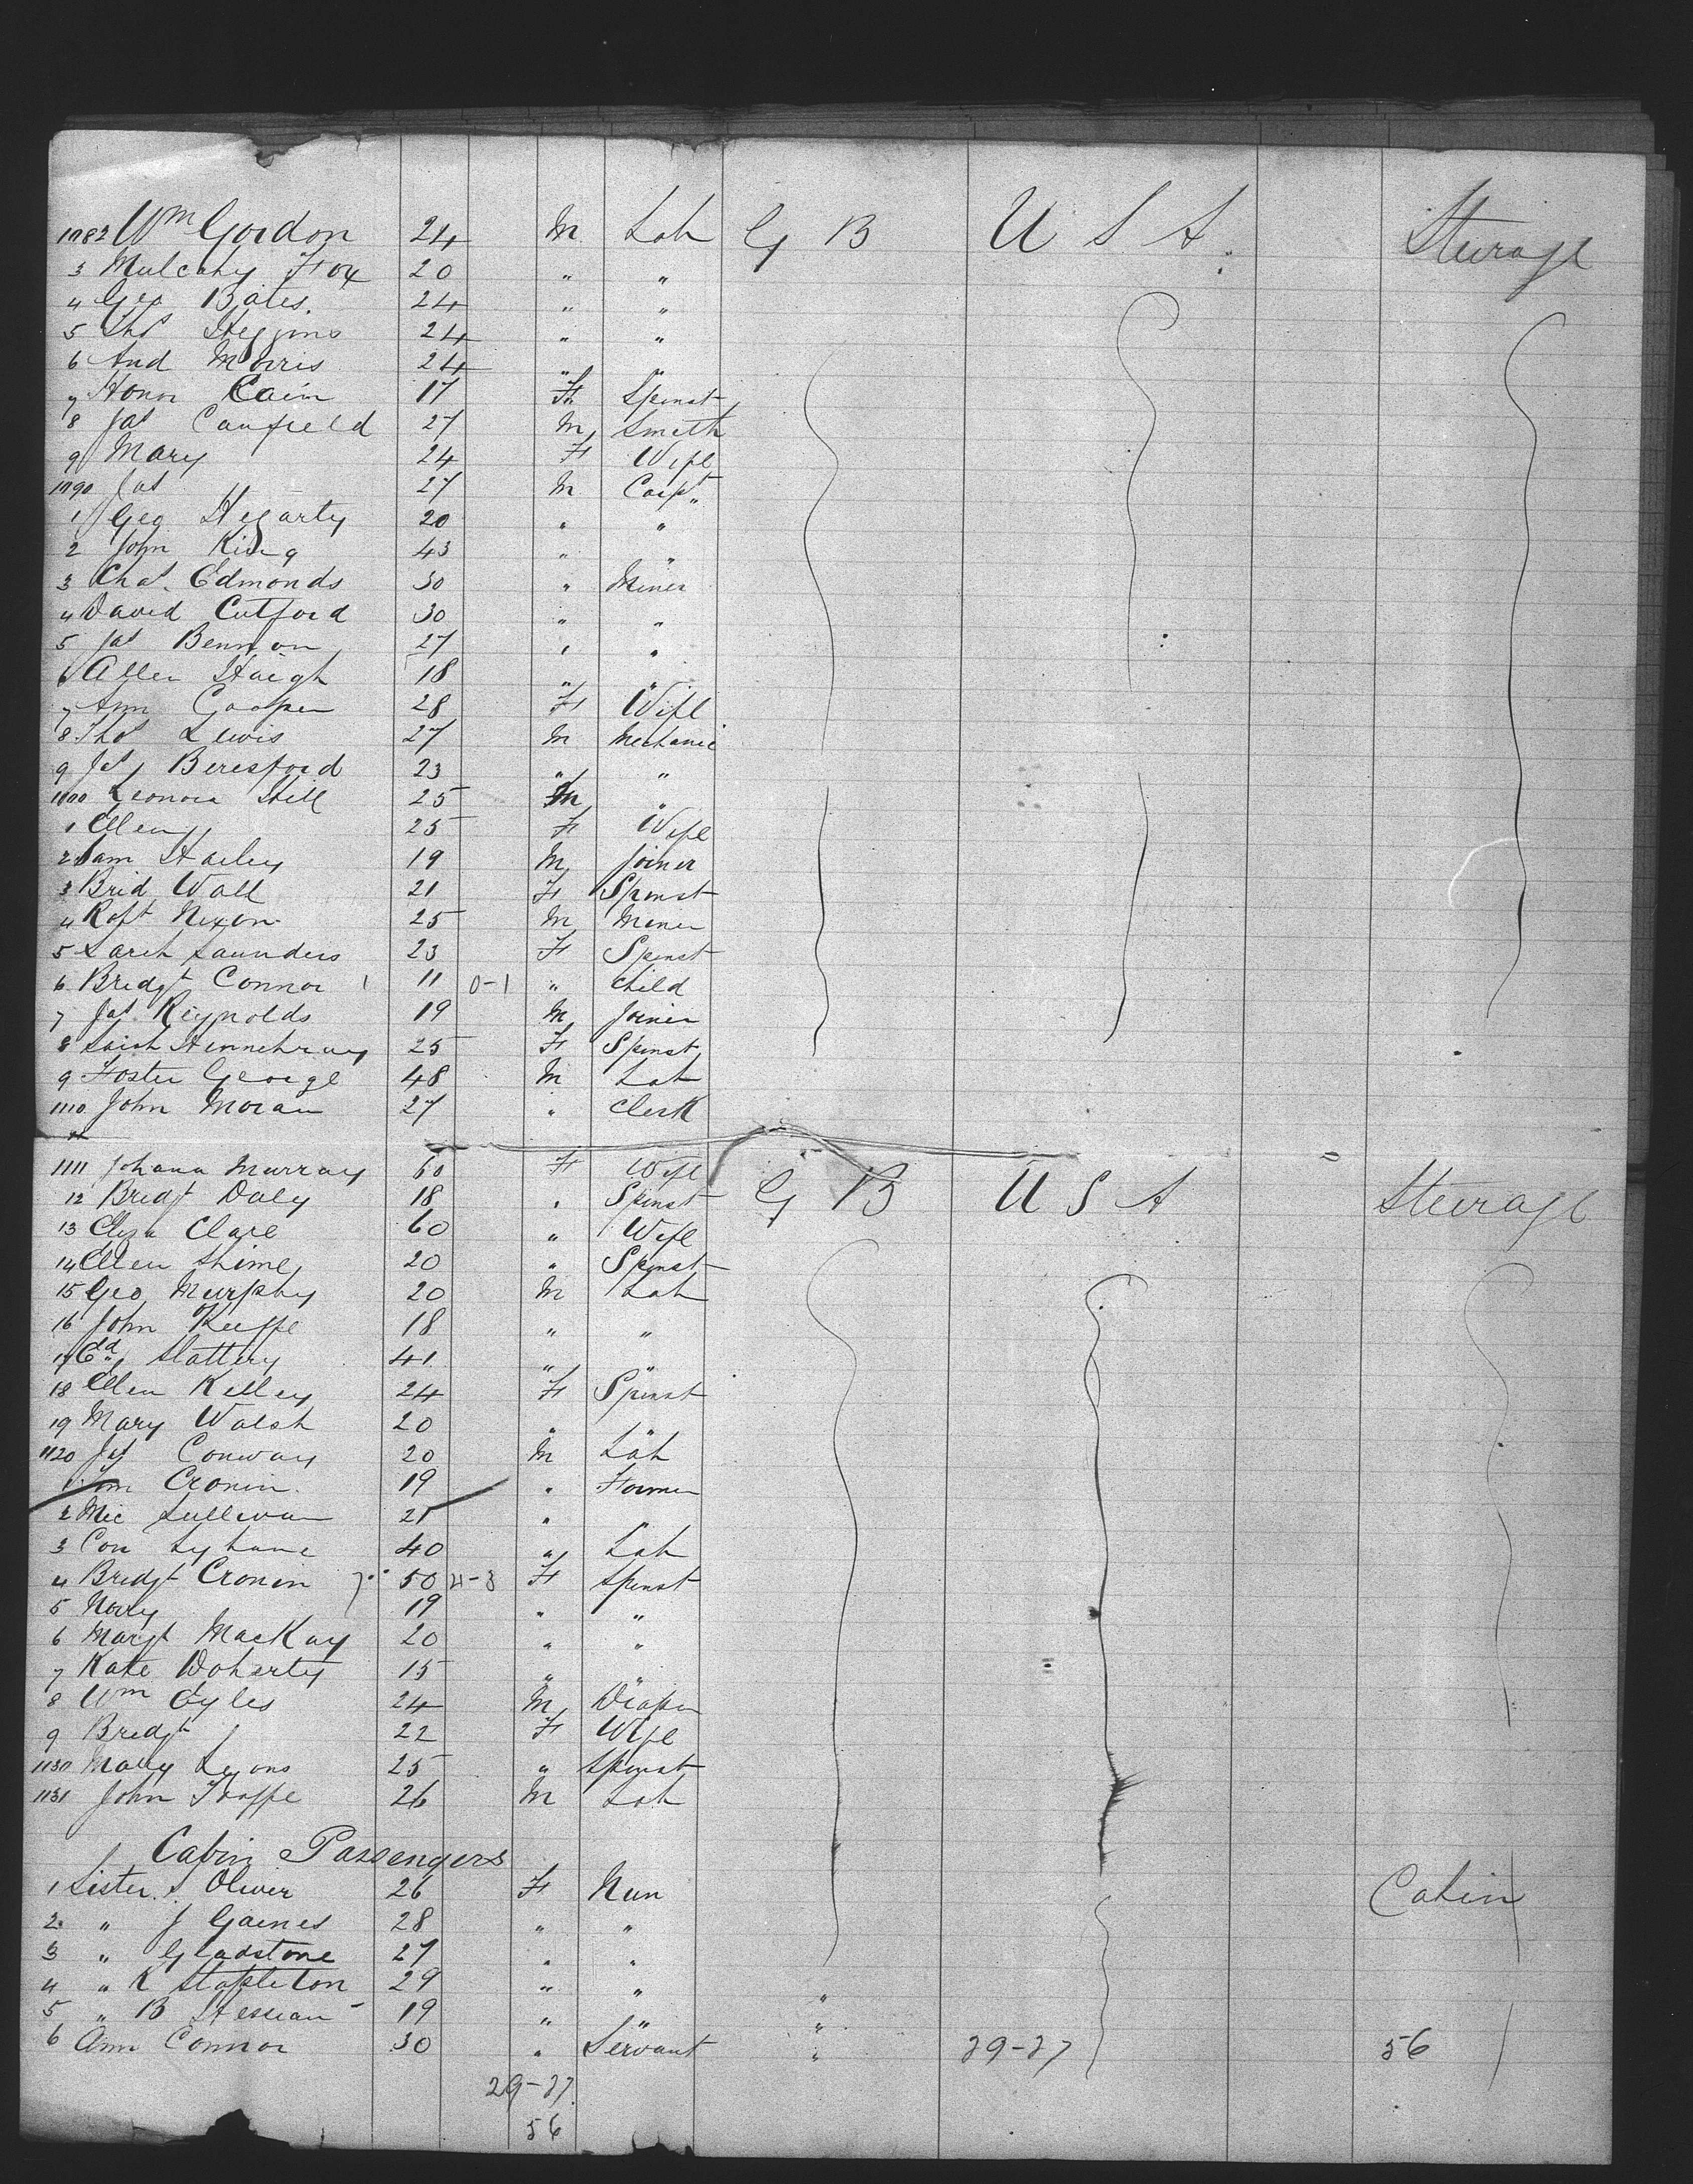 1082 Wm Gordon 24 M Lab G B U S A Steerage
3 Mulcahy Fox 20 " "
4 Geo Bates 24 " "
5 Thos Higgins 24 " "
6 And Morris 24 " "
7 Honor Cain 17 F Spinst
8 Jas Canfield 27 M Smith
9 Mary 24 F Wife
1090 Jas 27 M Carpt
1 Geo Hegarty 20 " "
2 John King 43 " "
3 Chas Edmonds 30 " Miner
4 David Cutford 30 " "
5 Jas Bennion 27 " "
6 Allen Haigh 18 " "
7 Ann Cooper 28 F Wife
8 Thos Lewis 27 M Mechanic
9 Jas Beresford 23 " "
1100 Leonora Hill 25 M "
1 Ellen " 25 F Wife
2 Sam Hailey 19 M Joiner
3 Brid Wall 21 F Spinst
4 Robt Nixon 25 M Miner
5 Sarah Saunders 23 F Spinst
6 Bridgt Connor 1 11 0-1 " Child
7 Jas Reynolds 19 M Joiner
8 25 F Spinst
9 Foster George 48 M Lab
1110 John Moran 27 " Clerk
1111 Johana Murray 60 F Wife G B U S A Steerage
12 Bridgt Daley 18 " Spinst
13 Eliza Clare 60 " Wife
14 Ellen Shine 20 " Spinst
15 Geo Murphy 20 M Lab
16 John Keeffe 18 " "
17 Edd Slattery 41 " "
18 Ellen Kelley 24 F Spinst
19 Mary Walsh 20 " "
1120 Jas Conway 20 M Lab
1 Tim Cronin 19 " Farmer
2 Mic Sullivan 21 " "
3 Con Lyhane 40 " Lab
4 Bridgt Cronin 50 F Spinst
5 Nory 19 " "
6 Margt MacKay 20 " "
7 Kate Doherty 15 " "
8 Wm Eyles 24 M Draper
9 Bridgt 22 F Wife
1130 Mary Lyons 25 " Spinst
1131 John 26 M Lab
Cabin Passengers
1 Sister S Oliver 26 F Nun Cabin
2 " J Gaines 28 " "
3 " Gladstone 27 " "
4 " K Stapleton 29 " " "
5 " B Hessian 19 " " "
6 Ann Connor 30 " Servant " 29-27 56
29-27
56